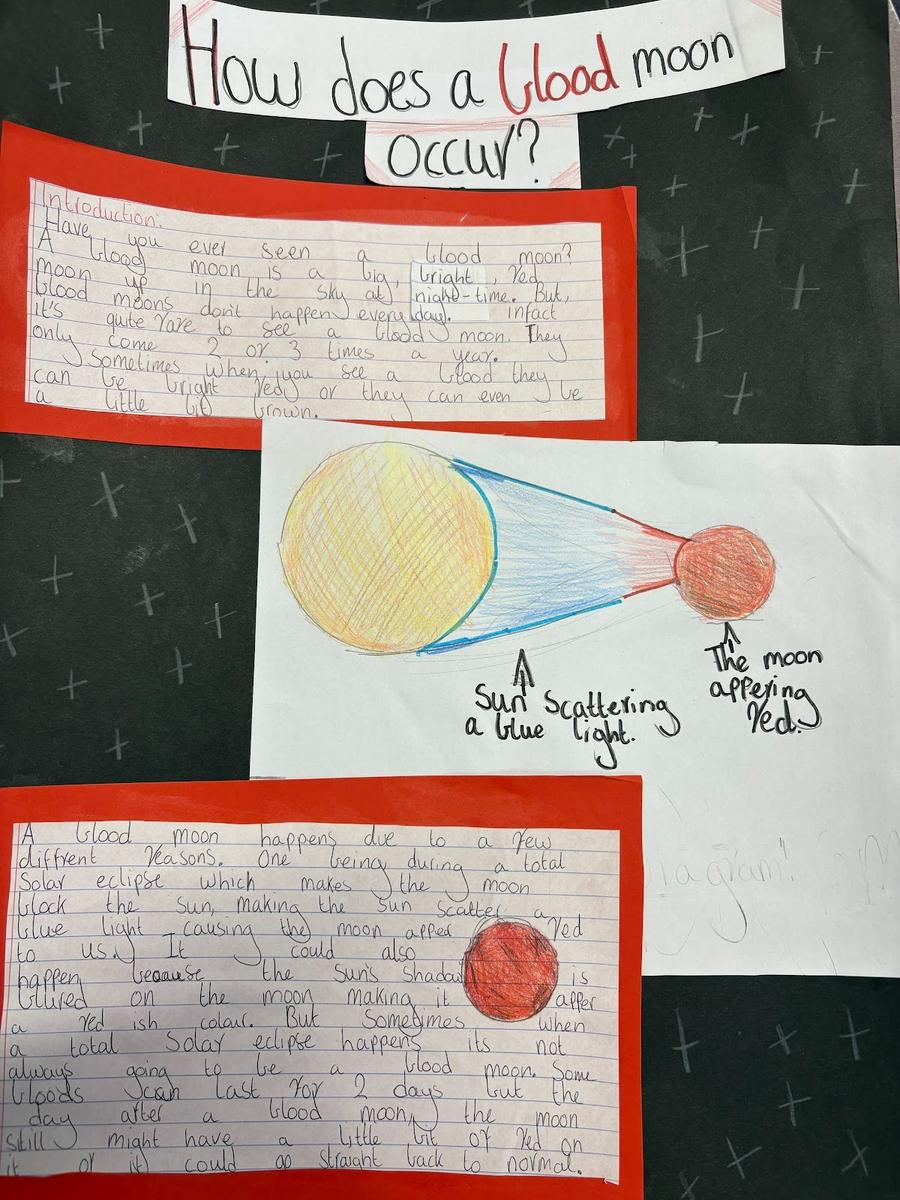 How does a blood moon
occur?
Introduction:
Have you ever seen a blood moon?
A blood moon is a big, bright, red
moon up in the sky at night-time. But,
blood moons don't happen every day. infact
it's quite rare to see a blood moon. They
only come 2 or 3 times a year.
Sometimes when you see a blood they
can be bright red or they can even be
a little bit brown.
Sun scattering
a blue light.
The moon
appering
red.
A blood moon happens due to a few
diffrent reasons. One being during a total
Solar eclipse which makes the moon
block the sun, making the sun scatter a
blue light causing the moon apper red
to us. It could also
happen because the sun's shadow is
blured on the moon making it apper
a red ish colour. But Sometimes when
a total Solar eclipse happens its not
always going to be a blood moon. Some
bloods can last for 2 days but the
day after a blood moon, the moon
still might have a little bit of red on
it or it could go straight back to normal.